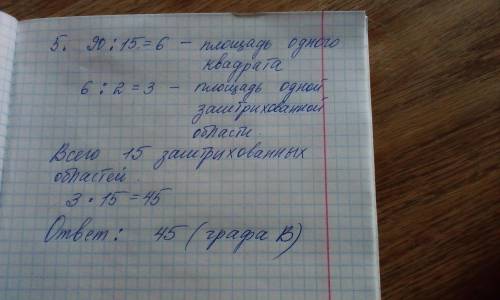 5. 90 : 15 = 6 – площадь одного
квадрата
6 : 2 = 3 – площадь одной
заштрихованной
области.
Всего 15 заштрихованных
областей.
3 · 15 = 45
Ответ: 45 (графа В)